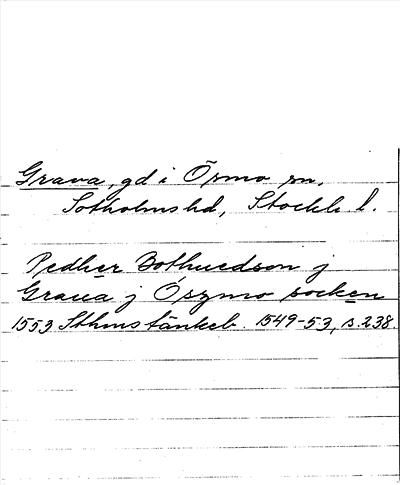 Grava, gd i Ösmo sn,
Sotholms hd, Stockh. l.
Pedher Bothuedson j
Graua j Öszmo socken
1553 Sthms tänkeb. 1549-53, s. 238.